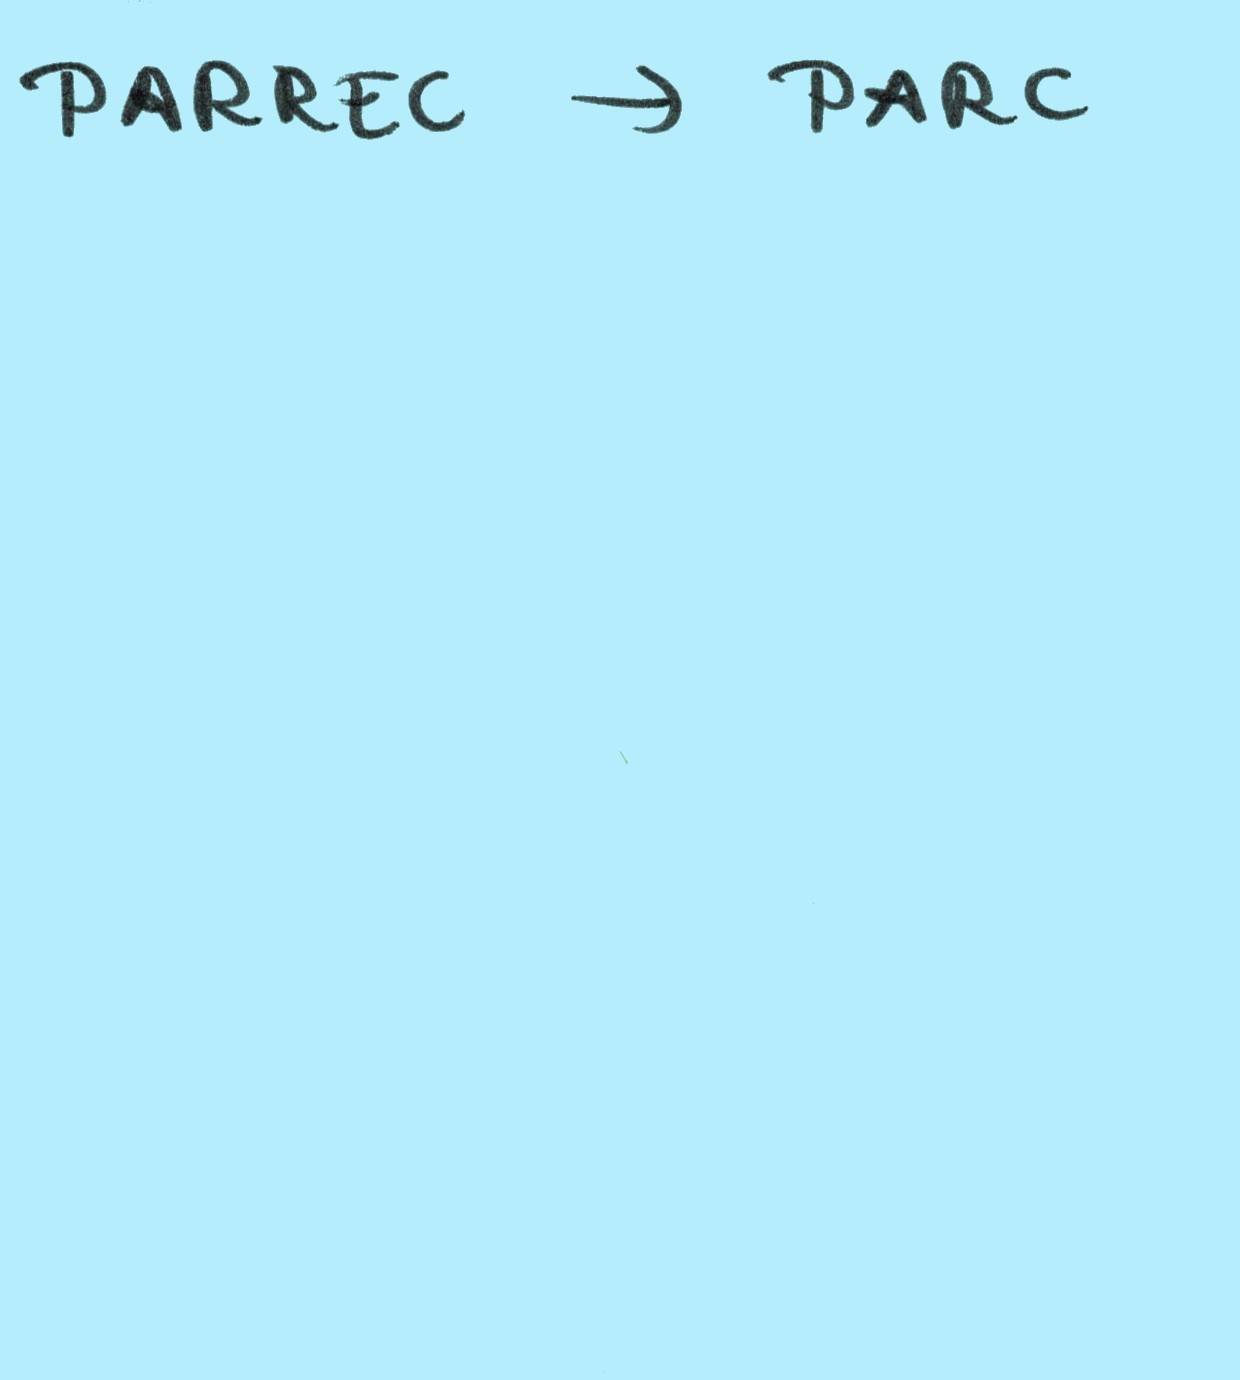 PARREC → PARC